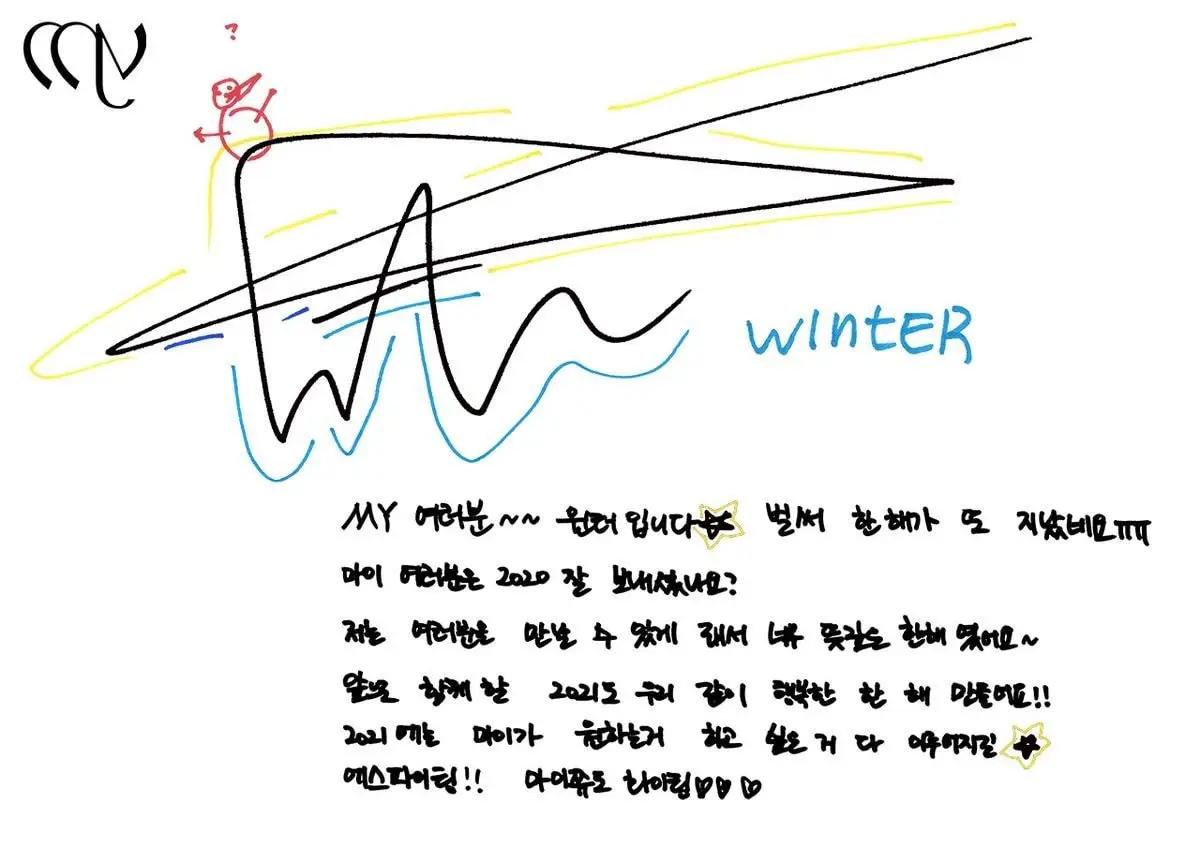 MY
?
WINTER
MY 여러분~~ 윈터입니다☆ 벌써 한 해가 또 지났네요ㅠㅠ
마이 여러분은 2020 잘 보내셨나요?
저는 여러분을 만날 수 있게 돼서 너무 뜻깊은 한해 였어요~
앞으로 함께 할 2021도 우리 같이 행복한 한 해 만들어요!!
2021에는 마이가 원하는거 하고 싶은 거 다 이루어지길☆
에스파이팅!! 마이쮸도 화이팅♡♡♡